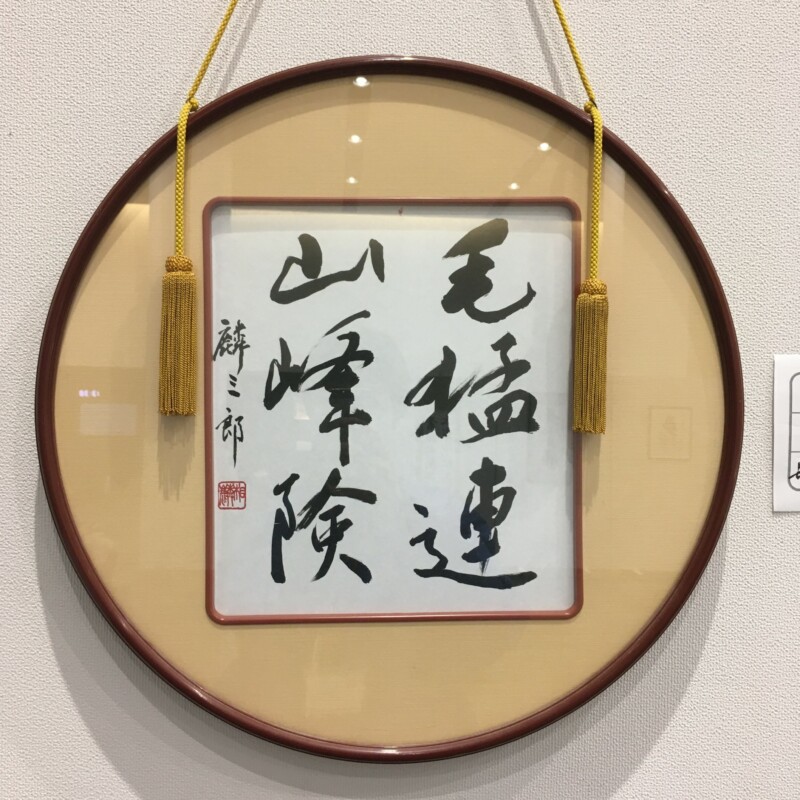 毛猛連
山峰険
麟三郎